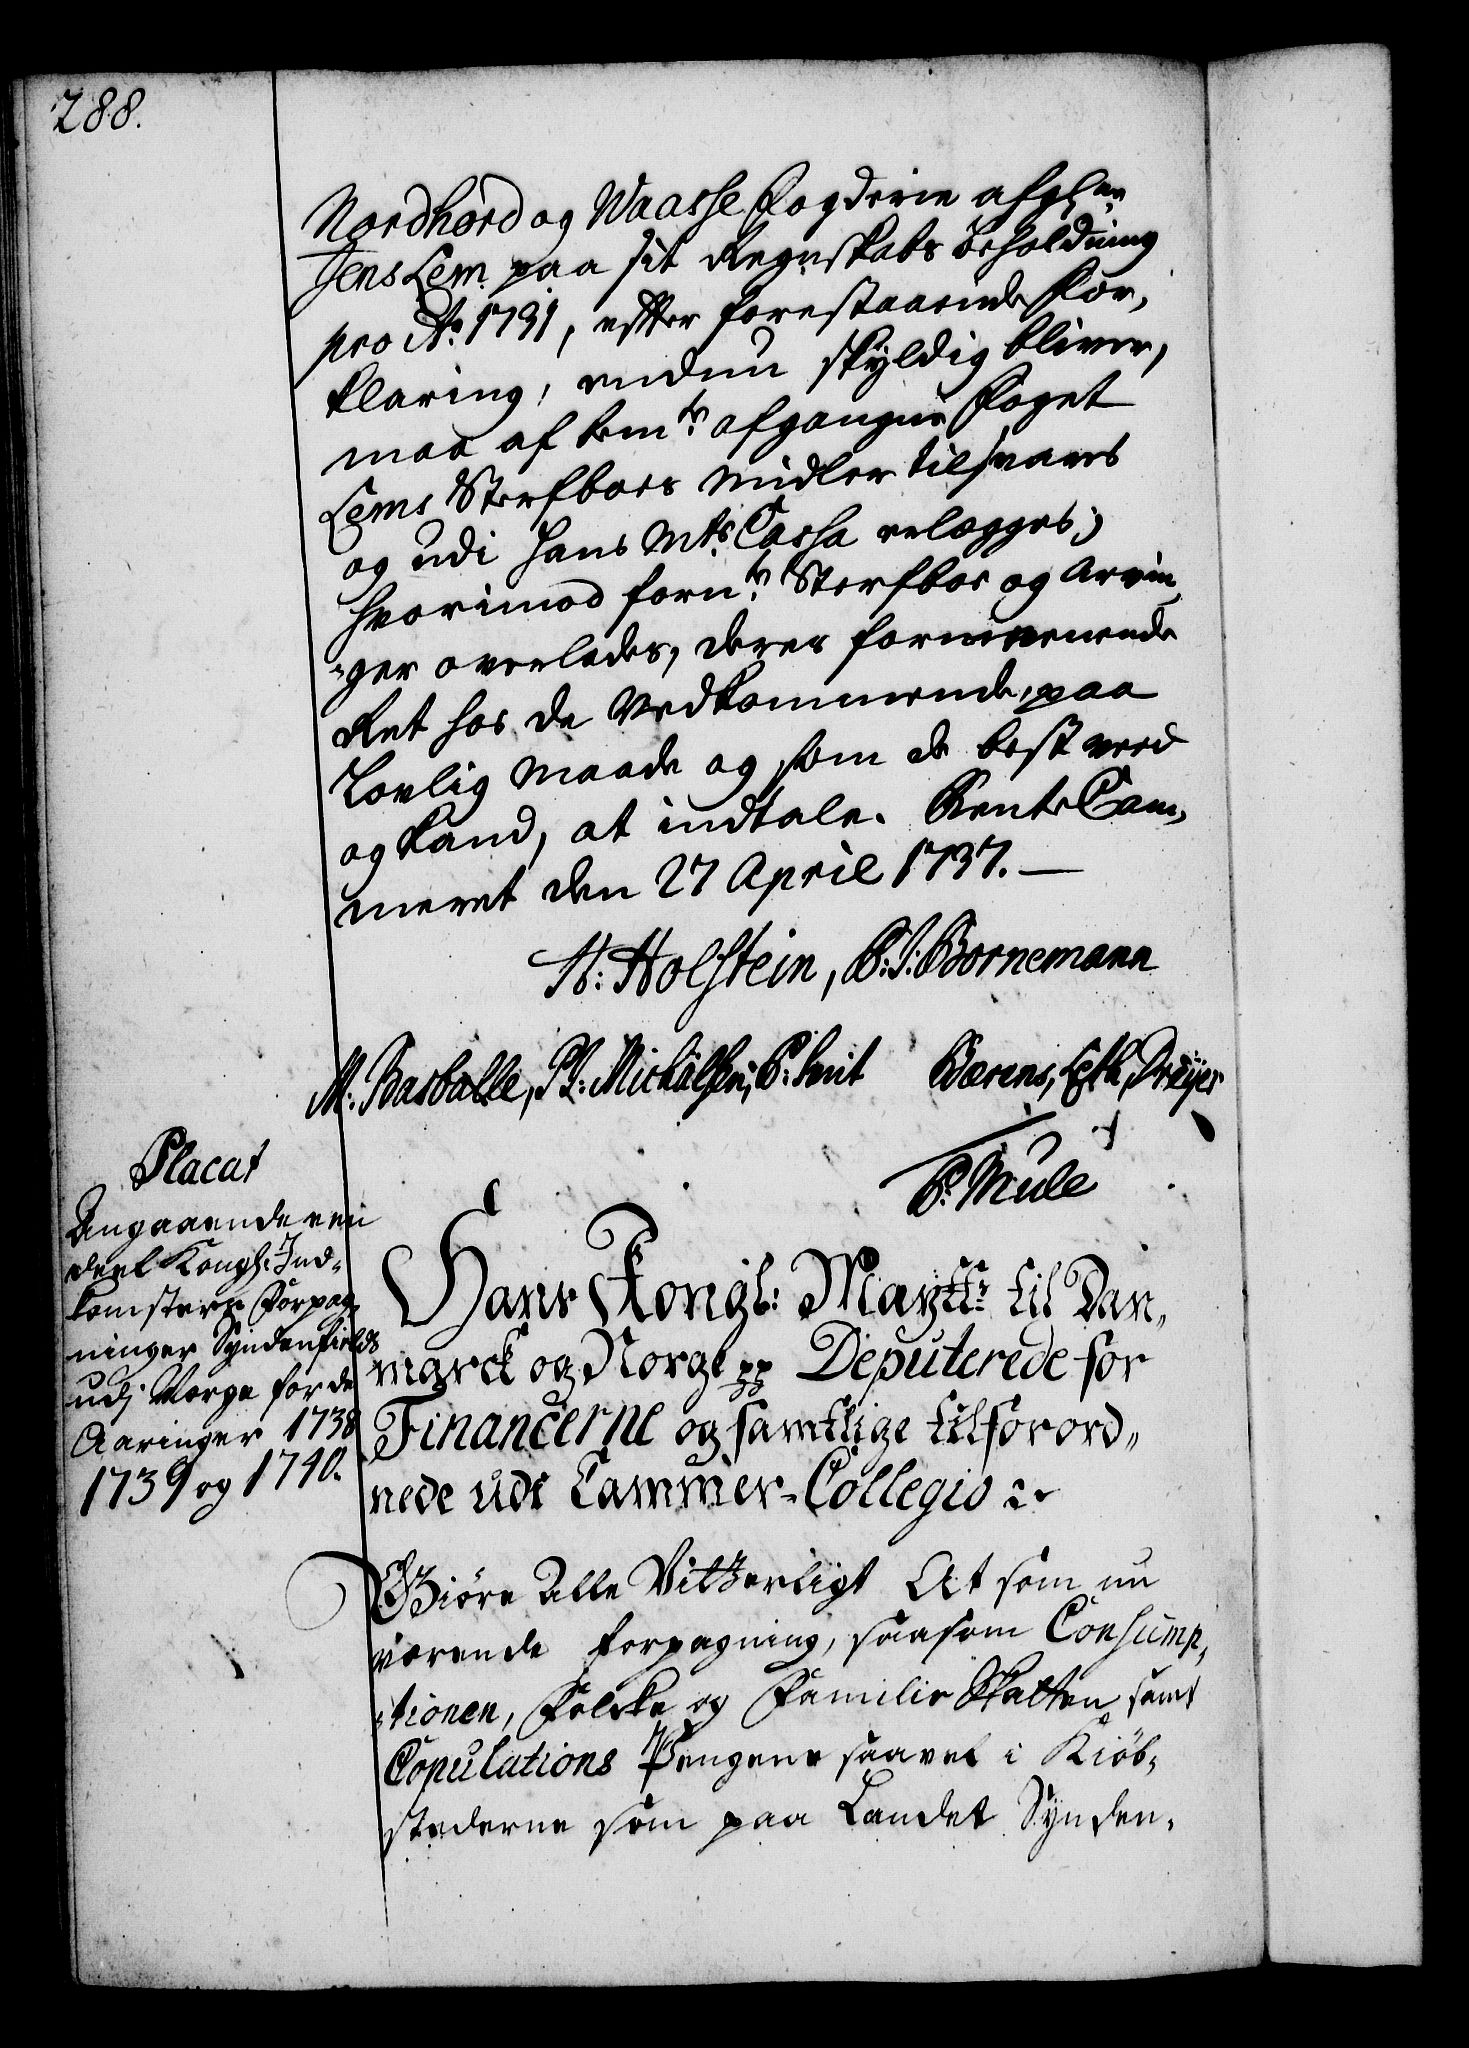 288.
Nordhord og Waasse Fogderie afg:ne
Jens Lem paa sit Regnskabs beholdning
pro Ao 1731, efter forestaaende For,
klaring, endnu skyldig bliver,
maa af bem:te afgangne Foget
Lems Sterfboes Midler tilsvares
og udi Hans Mts Cassa erlægges;
hvorimod forn:te Sterfboe og Arvin,
-ger overlades, deres formeenende
Ret hos de Vedkommende, paa
Lovlig Maade og som de best veed
og kand, at indtale. RenteCam,
meret den 27 April 1737.
H: Holstein, P: J: Bornemann
M: Basballe, P J: Michälsen, P: Smit Bærens, Eseth, Dreyer
P. Mule
Placat
Angaaende een
deel Kongl: Ind-
komsters Forpag,
ninger Syndenfields
udj Norge for de
Aaringer 1738
1739 og 1740.
Hans Kongl: Maytts til Dan,,
marck og Norge pp Deputerede for
Financerne og samtlige tilforord,,
nede udi Cammer-Collegio
Giøre Alle Vitterligt At som nu
værende forpagtning, saasom Consump,
-tionen, Folcke og Familie Skatten samt
Copulations Pengene saavel i Kiøb-
stederne som paa Landet Synden-